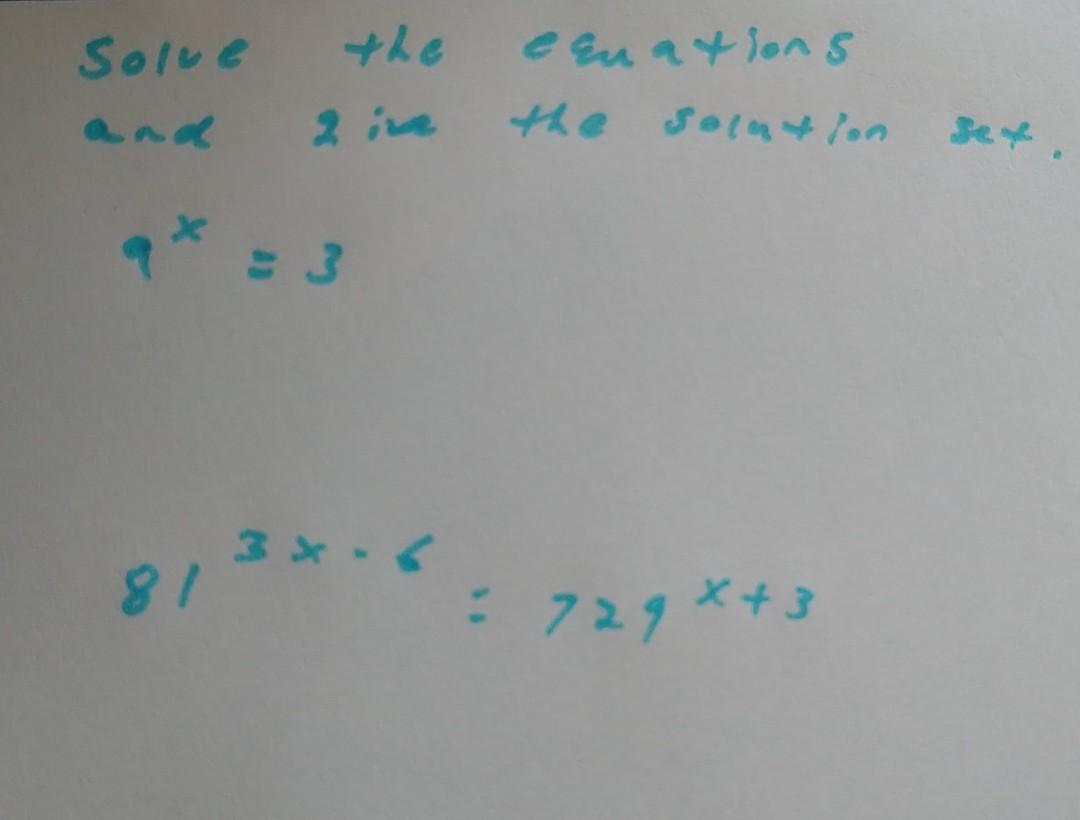 Solve the equations
and give the solution set.
9^x = 3
81^{3x-6} = 729^{x+3}